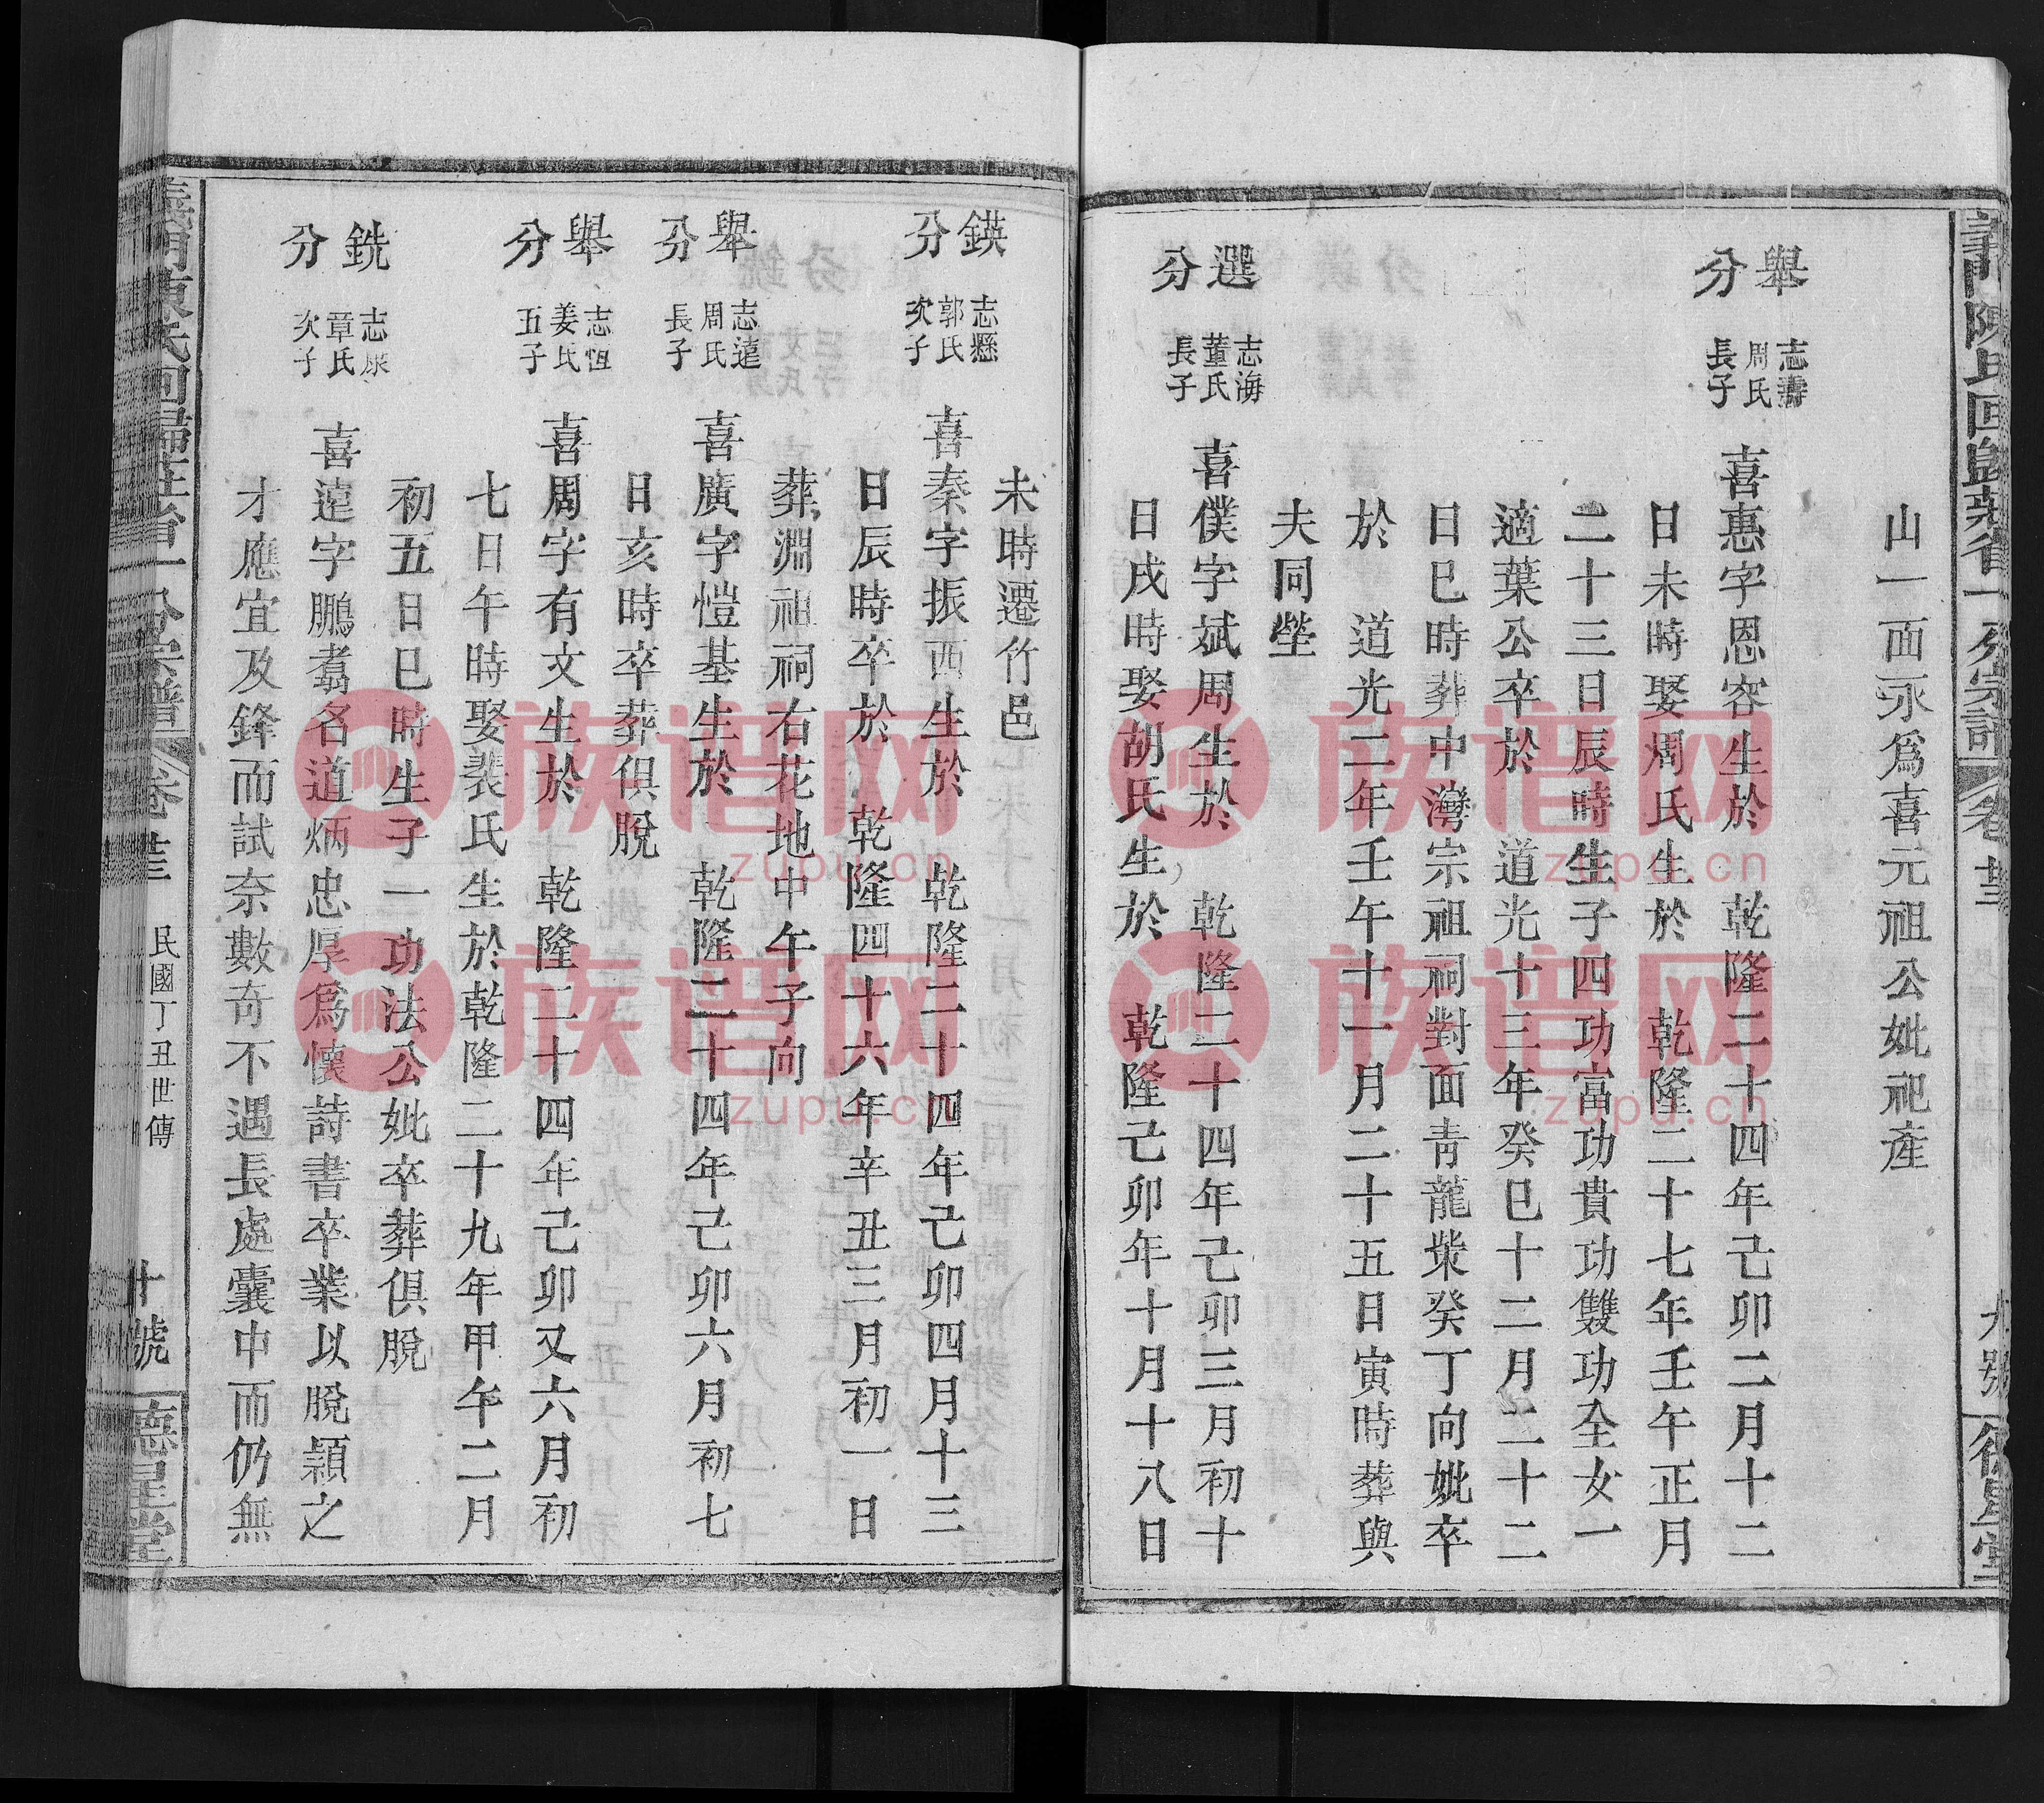 義門陳氏回歸莊省一公宗譜 卷 廿三 九號 德星堂
山一面永爲喜元祖公妣祀產
舉分 志濤周氏長子 喜惠字恩容生於 乾隆二十四年己卯二月十二
日未時娶周氏生於 乾隆二十七年壬午正月
二十三日辰時生子四功富功貴功雙功全女一
適葉公卒於 道光十三年癸巳十二月二十二
日巳時葬中灣宗祖祠對面青龍柴癸丁向妣卒
於 道光二年壬午十一月二十五日寅時葬與
夫同塋
選分 志海董氏長子 喜僕字斌周生於 乾隆二十四年己卯三月初十
日戌時娶胡氏生於 乾隆己卯年十月十八日
未時遷竹邑
鍈分 志懸郭氏次子 喜秦字振西生於 乾隆二十四年己卯四月十三
日辰時卒於 乾隆四十六年辛丑三月初一日
葬淵祖祠右花地中午子向
舉分 志遠周氏長子 喜廣字愷基生於 乾隆二十四年己卯六月初七
日亥時卒葬俱脫
舉分 志恒姜氏五子 喜周字有文生於 乾隆二十四年己卯又六月初
七日午時娶裴氏生於乾隆二十九年甲午二月
初五日巳時生子一功法公妣卒葬俱脫
銑分 志康章氏次子 喜遠字鵬翥名道炳忠厚爲懷詩書卒業以脫頴之
才應宜及鋒而試奈數奇不遇長處囊中而仍無
義門陳氏回歸莊省一公宗譜 卷 廿三 民國丁丑世傳 十號 德星堂
族谱网
zupu.cn
族谱网
zupu.cn
族谱网
zupu.cn
族谱网
zupu.cn